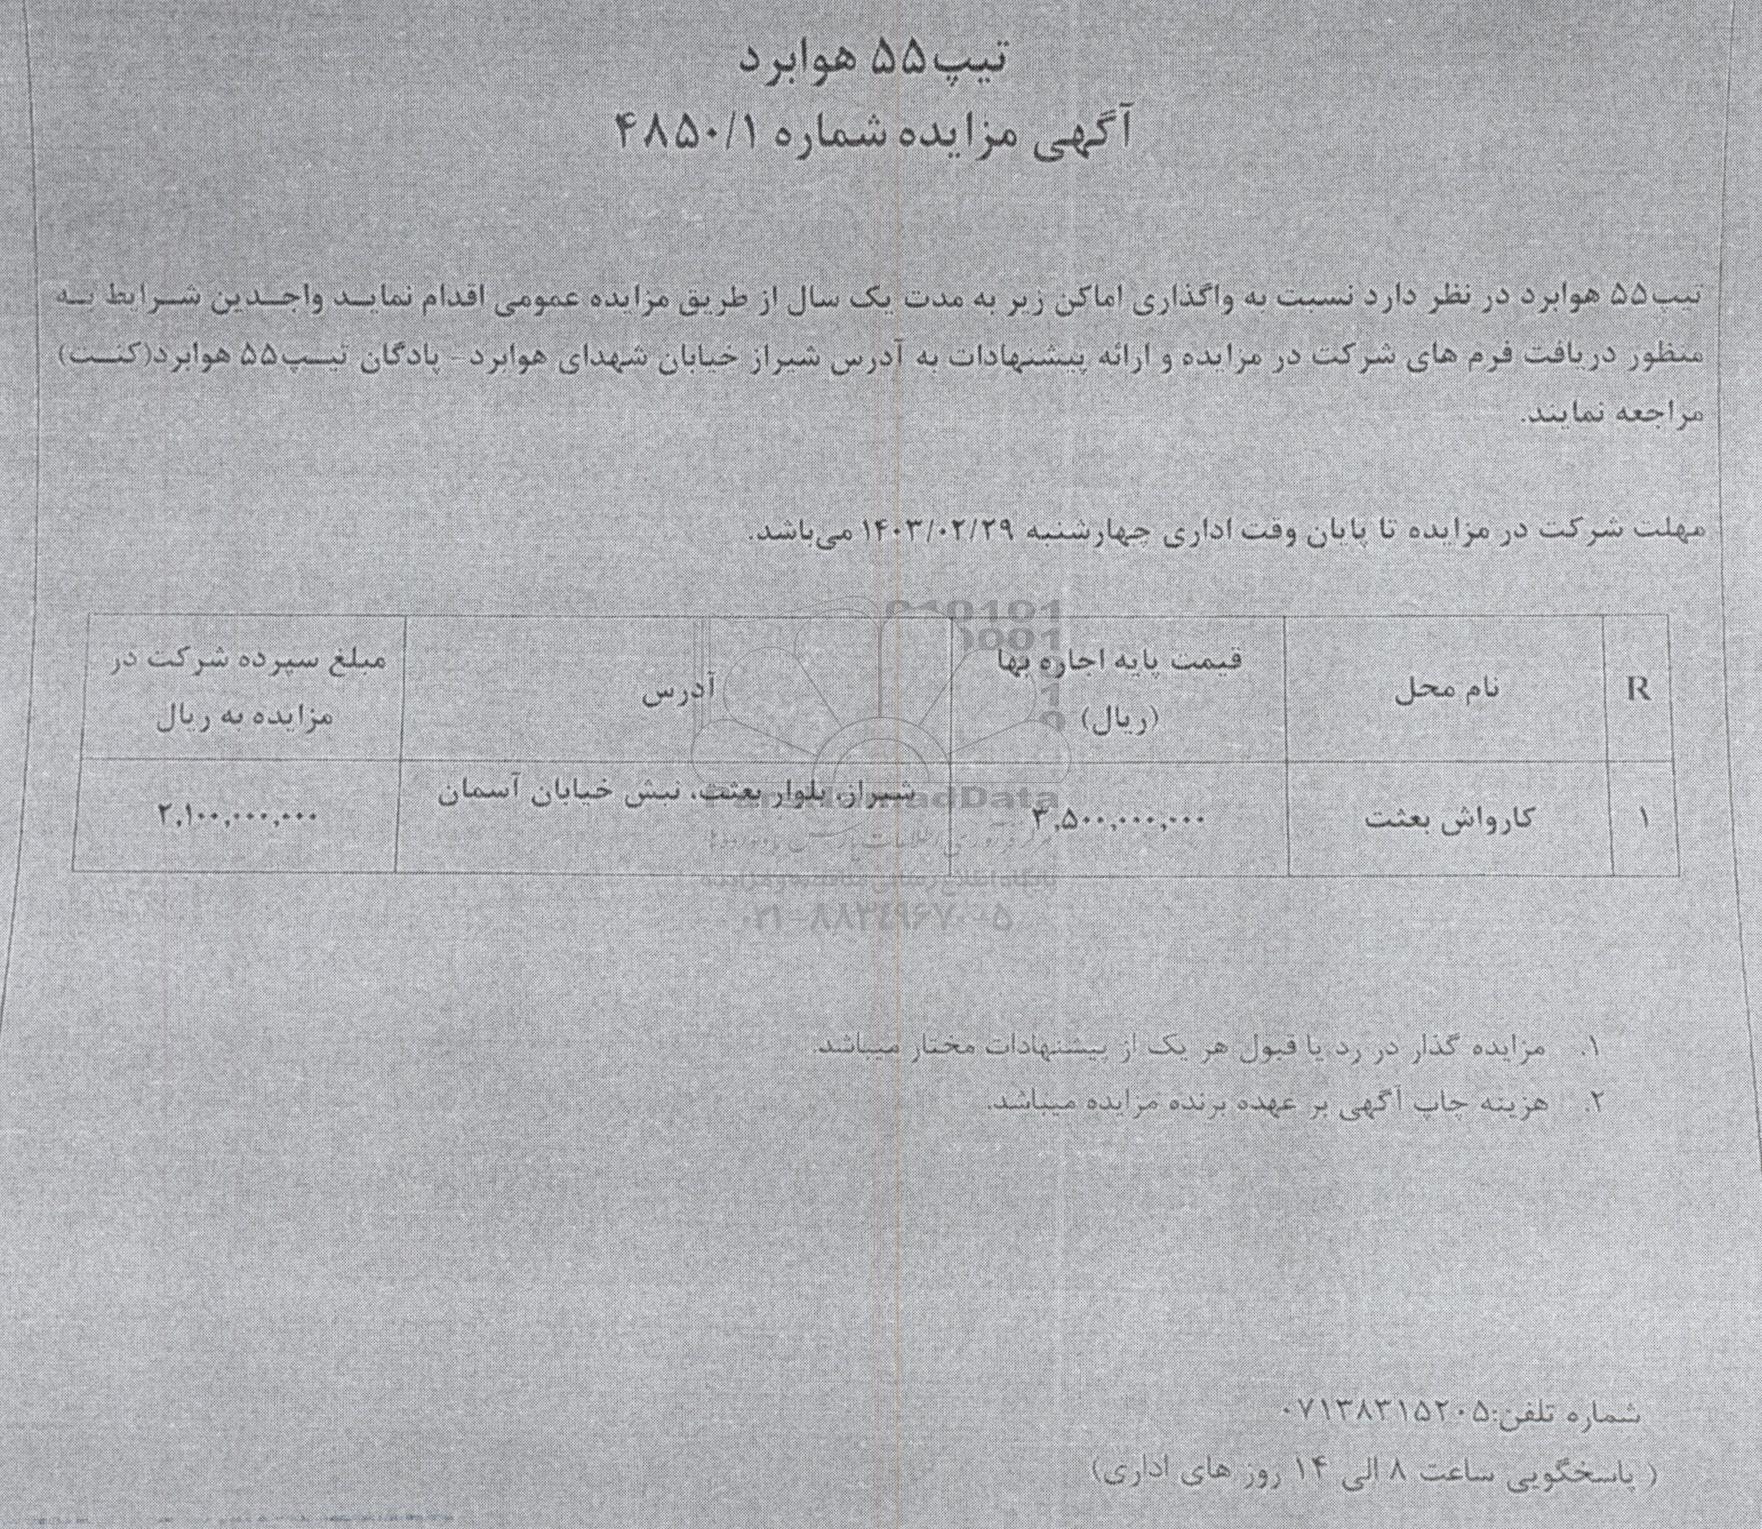 تیپ۵۵ هوابرد
آگهی مزایده شماره ۴۸۵۰/۱
تیپ۵۵ هوابرد در نظر دارد نسبت به واگذاری اماکن زیر به مدت یک سال از طریق مزایده عمومی اقدام نماید واجدین شرایط به
منظور دریافت فرم های شرکت در مزایده و ارائه پیشنهادات به آدرس شیراز خیابان شهدای هوابرد- پادگان تیپ۵۵ هوابرد(کنت)
مراجعه نمایند.
مهلت شرکت در مزایده تا پایان وقت اداری چهارشنبه ۱۴۰۳/۰۲/۲۹ می‌باشد.
R نام محل قیمت پایه اجاره بها (ریال) آدرس مبلغ سپرده شرکت در مزایده به ریال
۱ کارواش بعثت ۳,۵۰۰,۰۰۰,۰۰۰ شیراز، بلوار بعثت، نبش خیابان آسمان ۲,۱۰۰,۰۰۰,۰۰۰
۰۲۱-۸۸۳۴۹۶۷۰-۵
۱. مزایده گذار در رد یا قبول هر یک از پیشنهادات مختار میباشد.
۲. هزینه چاپ آگهی بر عهده برنده مزایده میباشد.
شماره تلفن:۰۷۱۳۸۳۱۵۲۰۵
( پاسخگویی ساعت ۸ الی ۱۴ روز های اداری)